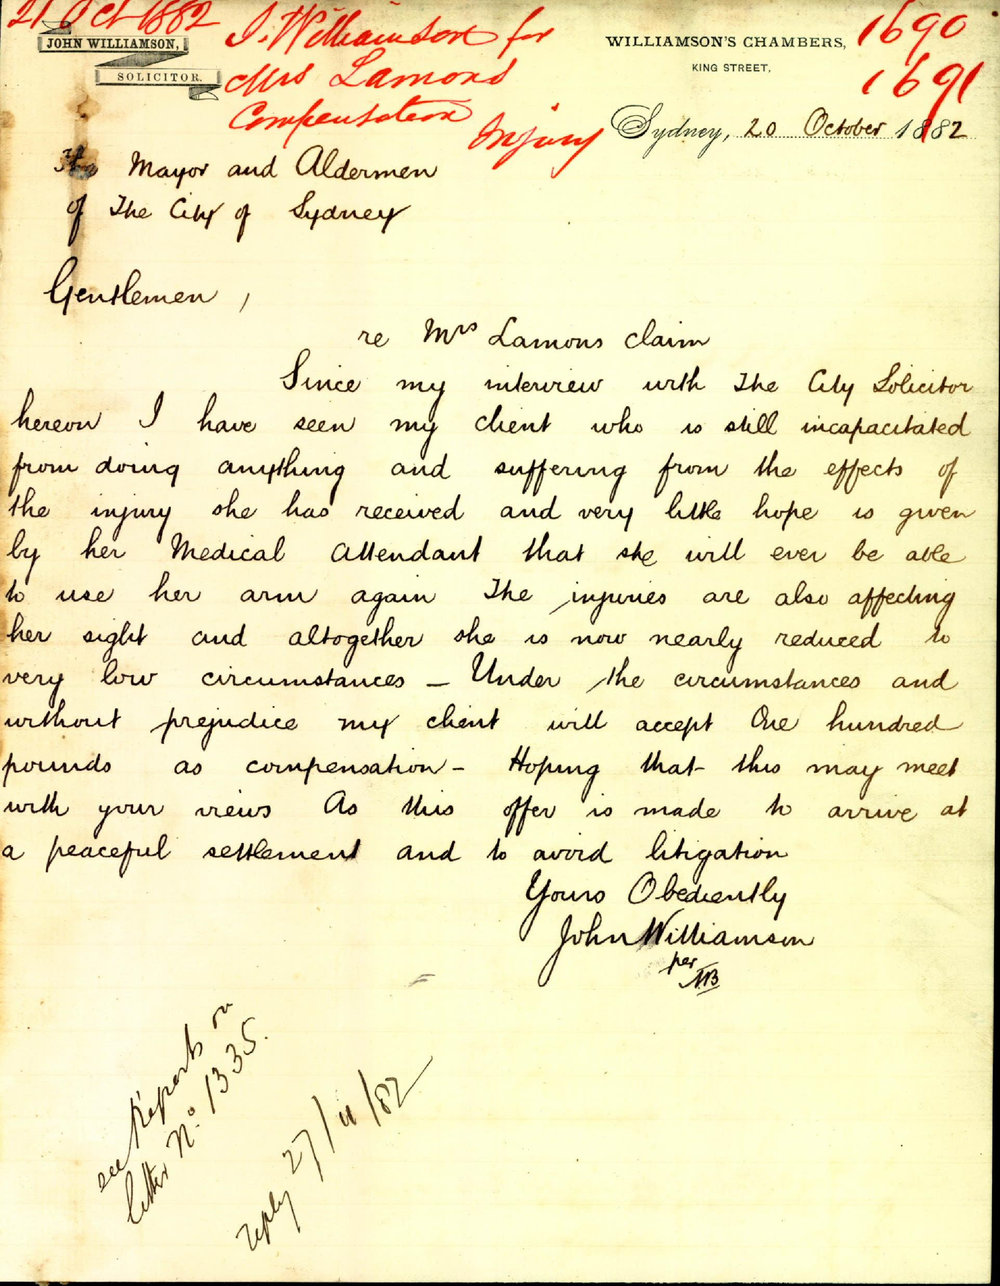 21 Oct 1882
JOHN WILLIAMSON,
SOLICITOR.
J. Williamson for
Mrs Lamons
Compensation
Injury
WILLIAMSON'S CHAMBERS,
KING STREET.
1690
1691
Sydney, 20 October 1882
The Mayor and Aldermen
of The City of Sydney
Gentlemen,
re Mrs Lamons claim
Since my interview with The City Solicitor
hereon I have seen my client who is still incapacitated
from doing anything and suffering from the effects of
the injury she has received and very little hope is given
by her Medical Attendant that she will ever be able
to use her arm again The injuries are also affecting
her sight and altogether she is now nearly reduced to
very low circumstances – Under the circumstances and
without prejudice my client will accept One hundred
pounds as compensation – Hoping that this may meet
with your views As this offer is made to arrive at
a peaceful settlement and to avoid litigation
Yours Obediently
John Williamson
per
see Reports on
letter No. 1335.
reply 27/11/82